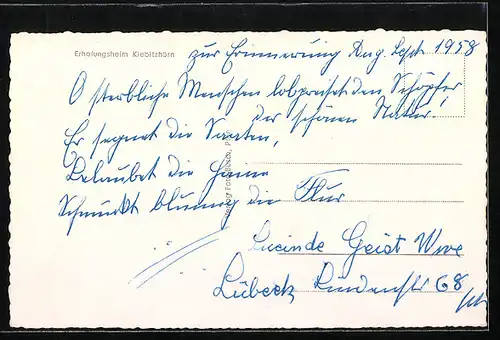 Erholungsheim Kiebitzhörn
zur Erinnerung Aug. Sept. 1958
O sterbliche Menschen lobpreiset den Schöpfer
der schönen Natur!
Er segnet die Saaten,
Belaubet die Haine
Schmückt blumig die Flur
Lucinde Geist Wwe
Lübeck Lindenstr 68